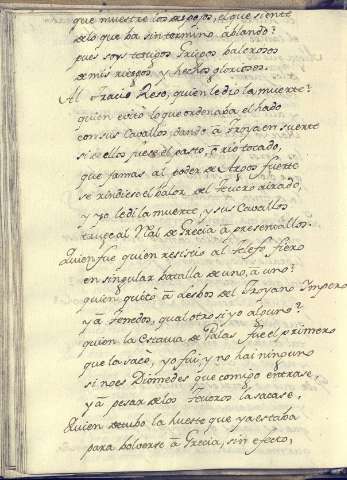 que muestre los despojos, el que siente
de lo que ha sin termino ablando?
pues soys testigos Griegos balerosos
de mis riesgos y hechos gloriosos.
Al Tracio Reso, quien le dio la muerte?
quien evitò lo que ordenaba el hado
con sus Cavallos dando à Troya en suerte
si de ellos fuese el pasto, ò rio tocado,
que jamas al poder de Argos fuerte
se rindiese el balor del Teucro airado,
y yo le di la muerte, y sus Cavallos
truge al Real de Grecia à presentallos.
Quien fue quien resistio al Telefo fiero
en singular batalla de uno, à uno?
quien quitò à Lesbos del Troyano Impero
y à Tenedos, qual otro si yo alguno?
quien la Estatua de Palas fue el primero
que la sacò, yo fui, y no hai ninguno
si no es Diomedes que comigo entrase,
y à pesar de los Teucros la sacase,
Quien detubo la hueste que ya estaba
para bolverse à Grecia, sin efecto,